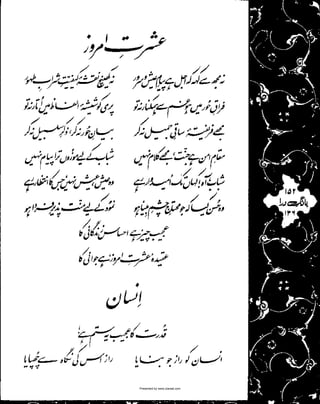 عشرتِ امروز
نہ مجھ سے کہہ کہ اجل ہے پیامِ عیش و سرور
نہ کھینچ نقشۂ کیفیتِ شرابِ طہور
فراقِ حور میں ہو غم سے ہمکنار نہ تو
پری کو شیشۂ الفاظ میں اُتار نہ تو
مجھے فریفتۂ ساقیِ جمیل نہ کر
بیانِ حور نہ کر، ذکرِ سلسبیل نہ کر
مقامِ امن ہے جنّت، مجھے کلام نہیں
شباب کے لیے موزوں ترا پیام نہیں
شباب، آہ! کہاں تک اُمیدوار رہے
وہ عیش، عیش نہیں، جس کا انتظار رہے
وہ حُسن کیا کہ جو محتاجِ چشمِ بینا ہو
نمود کے لیے منّت پذیرِ فردا ہو
عجیب چیز ہے احساس زندگانی کا
عقیدہ 'عشرتِ امروز' ہے جوانی کا
اِنسان
قُدرت کا عجیب یہ ستم ہے!
انسان کو راز جو بنایا
راز اس کی نگاہ سے چھپایا
بانگِ درا
Presented by www.ziaraat.com